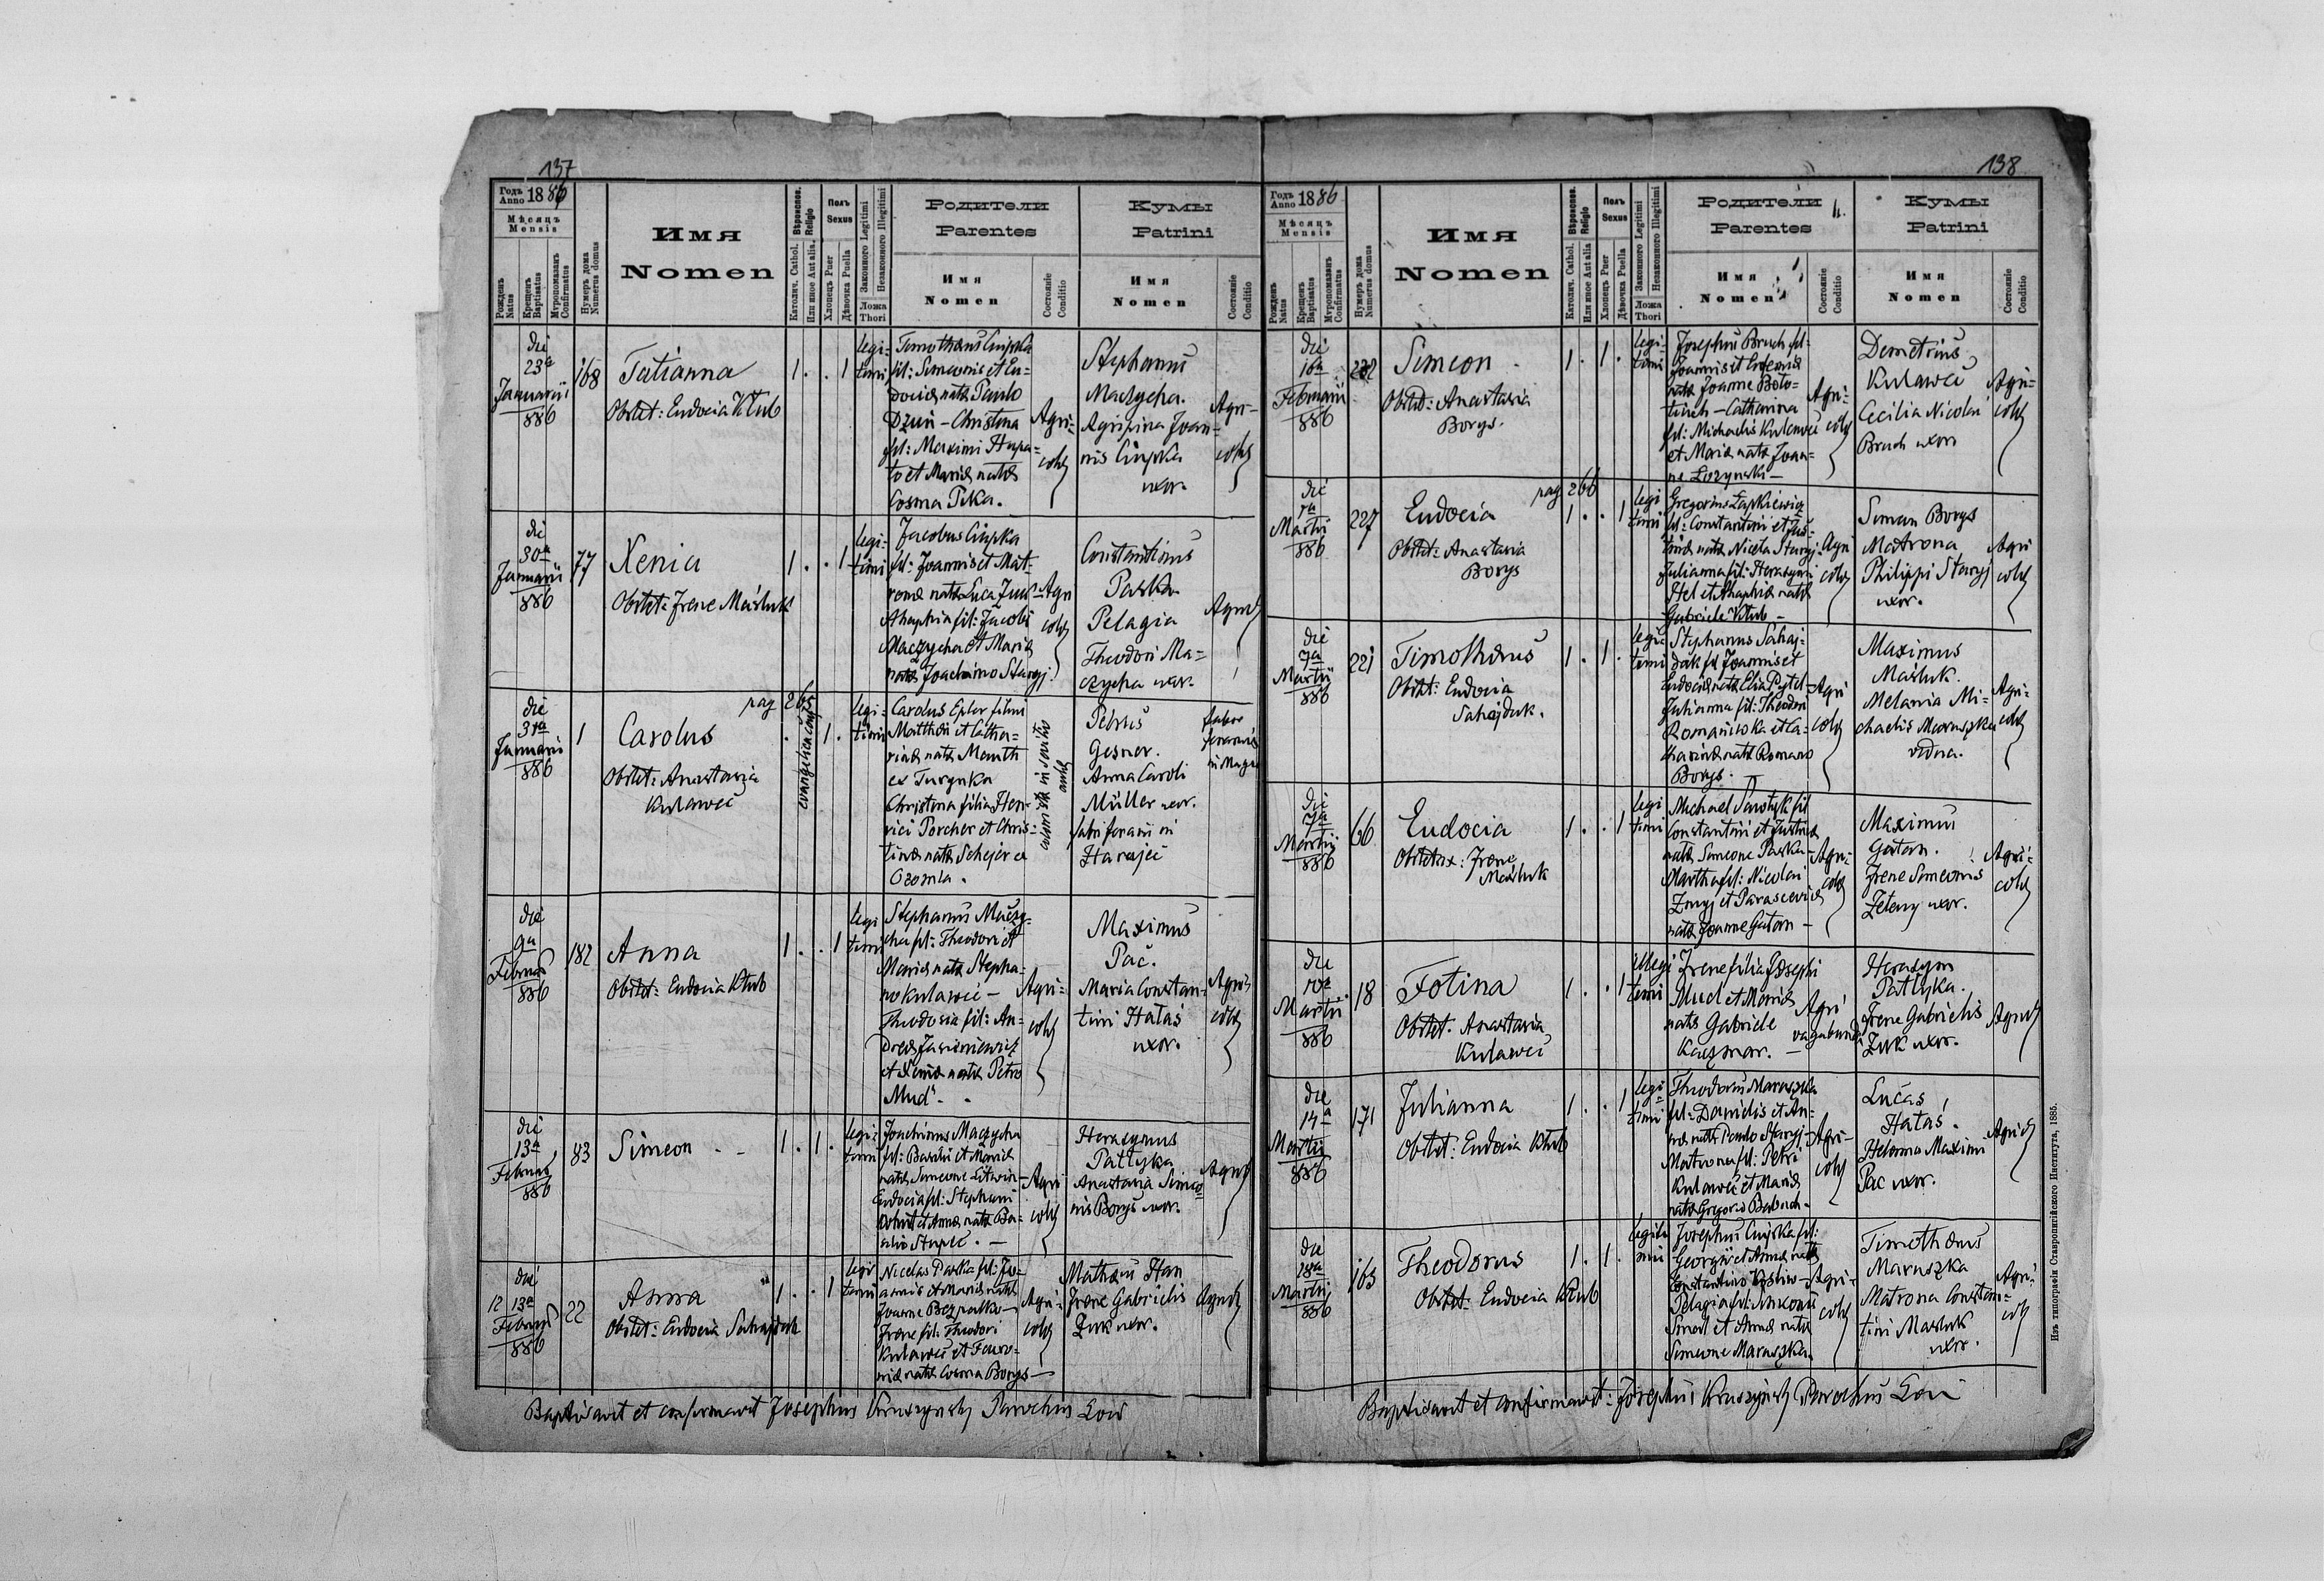 137
Годъ Anno 1886
Мѣсяцъ
Mensis
Рожденъ Natus
Крещенъ Baptisatus
Мѵропомазанъ Confirmatus
Нумеръ дома Numerus domus
Имя
Nomen
Вѣроиспов. Religio
Католич. Cathol.
Или иное Aut alia.
Полъ
Sexus
Хлопецъ Puer
Дѣвочка Puella
Законного Legitimi
Незаконного Illegitimi
Ложа
Thori
Родители
Parentes
Имя
Nomen
Состояніе Conditio
Кумы
Patrini
Имя
Nomen
Состояніе Conditio
die
23a
Januarii
886
168
Tatianna
Obstet: Eudocia Kłub
1 . . 1
legi-
timi
fil: Simeonis et Eu-
docia nata Paulo
Dzuń - Christina
fil: Maximi Hapa-
to et Maria nata
Cosma Pika.
Agri-
colae
Stephanus
Maczycha.
Agripina Joan-
nis Ciupka
uxor.
Agri-
colae
die
30a
Januarii
886
77
Xenia
Obstet: Irene Maśluk
1 . . 1
legi-
timi
Jacobus Ciupka
fil: Joannis et Mat-
Agaphia fil: Jacobi
Maczycha et Maria
nata Joachimo Staryj.
Agri
colae
Constantinus
Paska
Pelagia
Theodori Ma-
czycha uxor.
Agricolae
die
31a
Januarii
886
1
pag 265
Carolus
Obstet: Anastasia
Kulaweć
evangelica conf
. 1 .
legi-
timi
Carolus Epler filius
Matthei et Catha-
rina nata Manth
ex Turynka
Christina filia Hen-
rici Porcher et Chris-
tina nata Schejer ex
Petrus
Gesner.
Anna Caroli
Müller uxor.
fabri ferarii in
Harajec
die
9a
Februarii
886
182
Anna
Obstet: Eudocia Kłub
1 . . 1
legi
timi
Stephanus Maczy-
cha fil: Theodori et
Maria nata Stepha-
no Kulaweć -
Theodosia fil: An-
et Xenia nata Petro
Mud -
Agri-
colae
Maximus
Pać.
Maria Constan-
tini Hałas
uxor.
Agri-
colae
die
13a
Februarii
886
83
Simeon
1 . 1 .
legi-
timi
Joachimus Maczycha
fil: Basilii et Maria
nata Simeone Litwin
Eudocia fil: Stephani
Agri
colae
Herasymus
Patłyka
Anastasia Simeo-
nis Borys uxor.
Agricolae
die
12 13a
Februarii
886
22
Anna
Obstet: Eudocia Sahajdak
1 . . 1
legi
timi
Nicolas Paska fil: Jo-
annis et Maria nata
Joanne Bezpalko
Irene fil: Theodori
Kulaweć et Fewro-
nia nata Cosma Borys
Agri-
colae
Mathaeus Han
Irene Gabrielis
Żuk uxor.
Agricolae
Baptisavit et confirmavit Josephus Kruszyński Parochus Loci
138
Годъ Anno 1886
Мѣсяцъ
Mensis
Рожденъ Natus
Крещенъ Baptisatus
Мѵропомазанъ Confirmatus
Нумеръ дома Numerus domus
Имя
Nomen
Вѣроиспов. Religio
Католич. Cathol.
Или иное Aut alia.
Полъ
Sexus
Хлопецъ Puer
Дѣвочка Puella
Законного Legitimi
Незаконного Illegitimi
Ложа
Thori
Родители
Parentes
Имя
Nomen
Состояніе Conditio
Кумы
Patrini
Имя
Nomen
Состояніе Conditio
die
16a
Februarii
886
232
Simeon
Obstet: Anastasia
Borys.
1 . 1 .
legi-
timi
Josephus Bruch fil:
Joannis et Eudocia
nata Joanne Boto-
tiuch - Catharina
fil: Michaelis Kulaweć
et Maria nata Joan-
ne Łozynski -
Agri-
colae
Demetrius
Kulaweć
Cecilia Nicolai
Bruch uxor
Agri-
colae
die
1a
Martii
886
227
pag 266
Eudocia
Obstet: Anastasia
Borys
1 . . 1
legi
timi
Gregorius Łapkiewicz
fil: Constantini et Jus-
tina nata Nicola Staryj
Julianna fil: Herasymi
Hel et Ahaphia nata
Gabriele Kłub -
Agri
colae
Siman Borys
Matrona
Philippi Staryj
uxor.
Agri
colae
die
7a
Martii
886
221
Timothaeus
Obstet: Eudocia
Sahajdak.
1 . 1 .
legi-
timi
Stephanus Sahaj-
dak fil Joannis et
Eudocia nata Elia Pytel
Julianna fil: Theodori
Romaniwka et Ca-
tharina nata Romano
Borys.
Agri
colae
Maximus
Maśluk.
Melania Mi-
chaelis Maruszka
vidua.
Agri-
colae
die
7a
Martii
886
66
Eudocia
Obstetrix: Irene
Maśluk
1 . . 1
legi
timi
Constantini et Justina
nata Simeone Paska
Martha fil: Nicolai
Zmyj et Parascevia
nata Joanne Gatan -
Agri-
colae
Maximus
Gatan.
Irene Simeonis
Zeleny uxor.
Agri-
colae
die
10a
Martii
886
18
Fotina
Obstet: Anastasia
Kulaweć
1 . . 1
illegi
timi
Irene filia Josephi
Mud et Maria
nata Gabriele
Kaczmar. -
Agri
vagabunda
Herasym
Patłyka.
Irene Gabrielis
Żuk uxor.
Agricolae
die
14a
Martii
886
171
Julianna
Obstet: Eudocia Kłub
1 . . 1
legi-
timi
Theodorus Maruszka
fil: Danielis et An-
na nata Paulo Staryj
Matrona fil: Petri
Kulaweć et Maria
nata Gregorio Babuch.
Agri-
colae
Lucas
Hałas.
Helena Maximi
Pac uxor.
Agricolae
die
18a
Martii
886
163
Theodorus
Obstet: Eudocia Kłub
1 . 1 .
legiti
mi
Josephus Ciupka fil:
Georgii et Anna nata
Pelagia fil: Simeonis
Smal et Anna nata
Simeone Maruszka.
Agri-
colae
Timothaeus
Maruszka
Matrona Constan-
tini Maśluk
uxor.
Agri-
colae
Baptisavit et confirmavit: Josephus Kruszyński Parochus Loci
Изъ типографіи Ставропигійского Института, 1885.